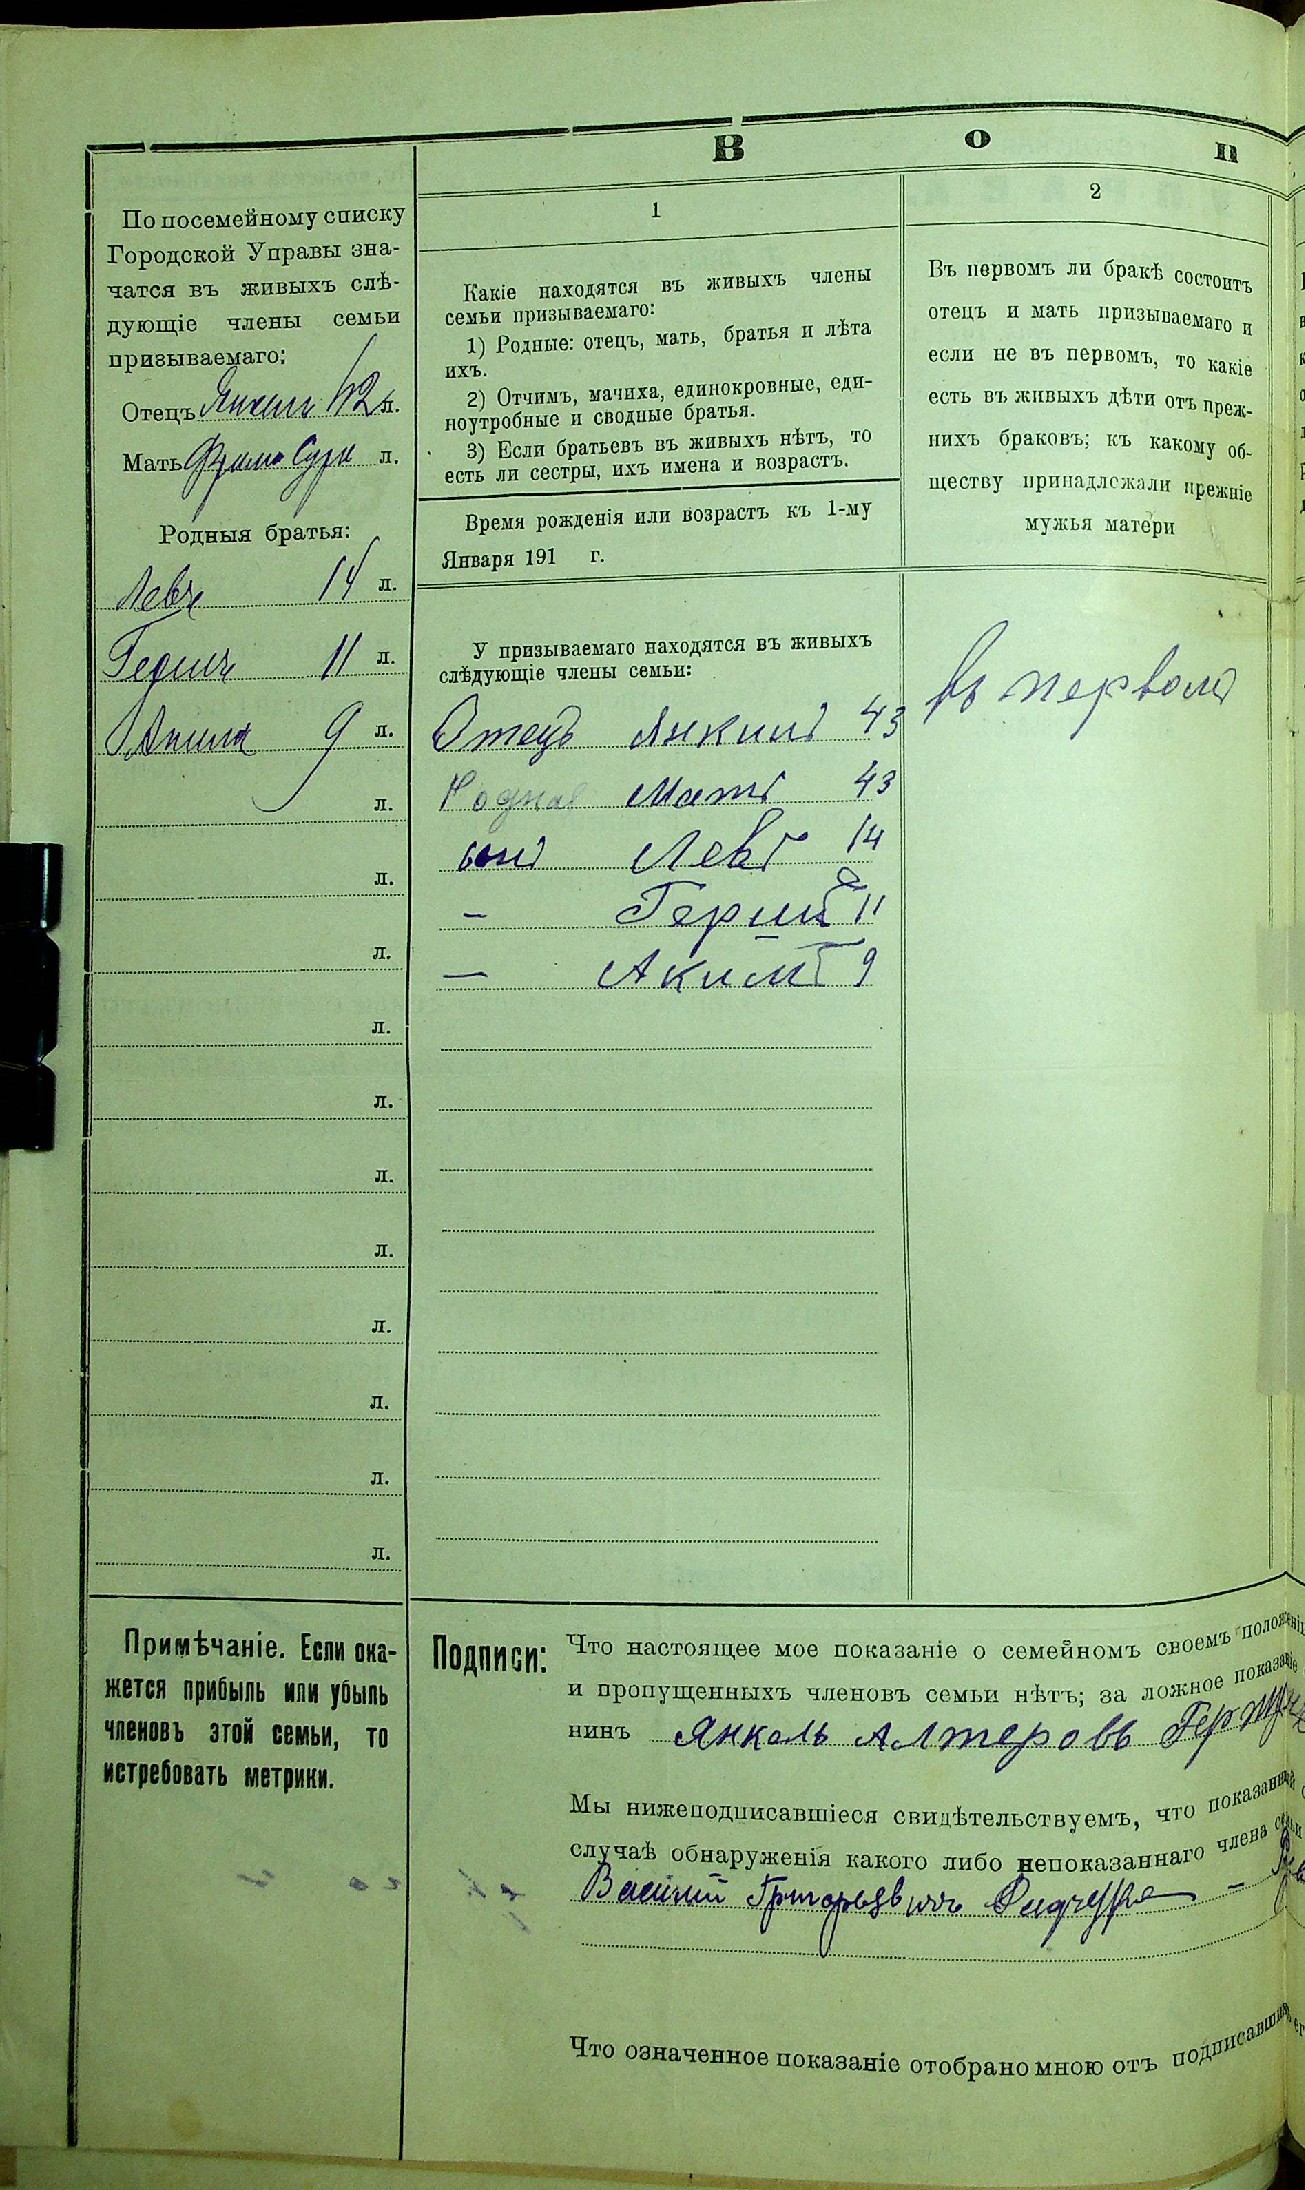 В о п
По посемейному списку
Городской Управы зна-
чатся въ живыхъ слѣ-
дующіе члены семьи
призываемаго:
Отецъ 42 л.
Мать Сура л.
Родныя братья:
Левъ 14 л.
11 л.
9 л.
л.
л.
л.
л.
л.
л.
л.
л.
л.
л.
л.
Примѣчаніе. Если ока-
жется прибыль или убыль
членовъ этой семьи, то
истребовать метрики.
1
Какіе находятся въ живыхъ члены
семьи призываемаго:
1) Родные: отецъ, мать, братья и лѣта
ихъ.
2) Отчимъ, мачиха, единокровные, еди-
ноутробные и сводные братья.
3) Если братьевъ въ живыхъ нѣтъ, то
есть ли сестры, ихъ имена и возрастъ.
Время рожденія или возрастъ къ 1-му
Января 191 г.
У призываемаго находятся въ живыхъ
слѣдующіе члены семьи:
Отецъ 43
Родная Мать 43
Левъ 14
– 11
– Акимъ 9
2
Въ первомъ ли бракѣ состоитъ
отецъ и мать призываемаго и
если не въ первомъ, то какіе
есть въ живыхъ дѣти отъ преж-
нихъ браковъ; къ какому об-
ществу принадлежали прежніе
мужья матери
въ первомъ
Подписи:
Что настоящее мое показаніе о семейномъ своемъ
и пропущенныхъ членовъ семьи нѣтъ; за ложное показаніе
нинъ Янкель Алтеровъ
Мы нижеподписавшіеся свидѣтельствуемъ, что
случаѣ обнаруженія какого либо непоказаннаго члена
Василий Григорьевичъ
Что означенное показаніе отобрано мною отъ